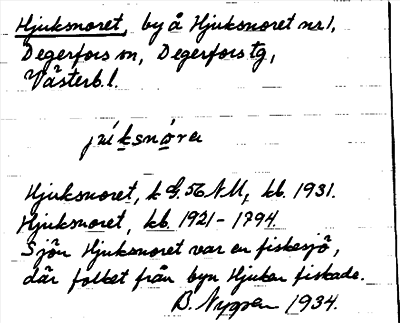 Hjuksnoret, by å Hjuksnoret nr 1,
Degerfors sn, Degerfors tg,
Västerb. l.
Hjuksnoret, k G. 56 NM, kb. 1931.
Hjuksnoret, kb. 1921-1794.
Sjön Hjuksnoret var en fiskesjö,
där folket från byn Hjuken fiskade.
B. Nygren 1934.